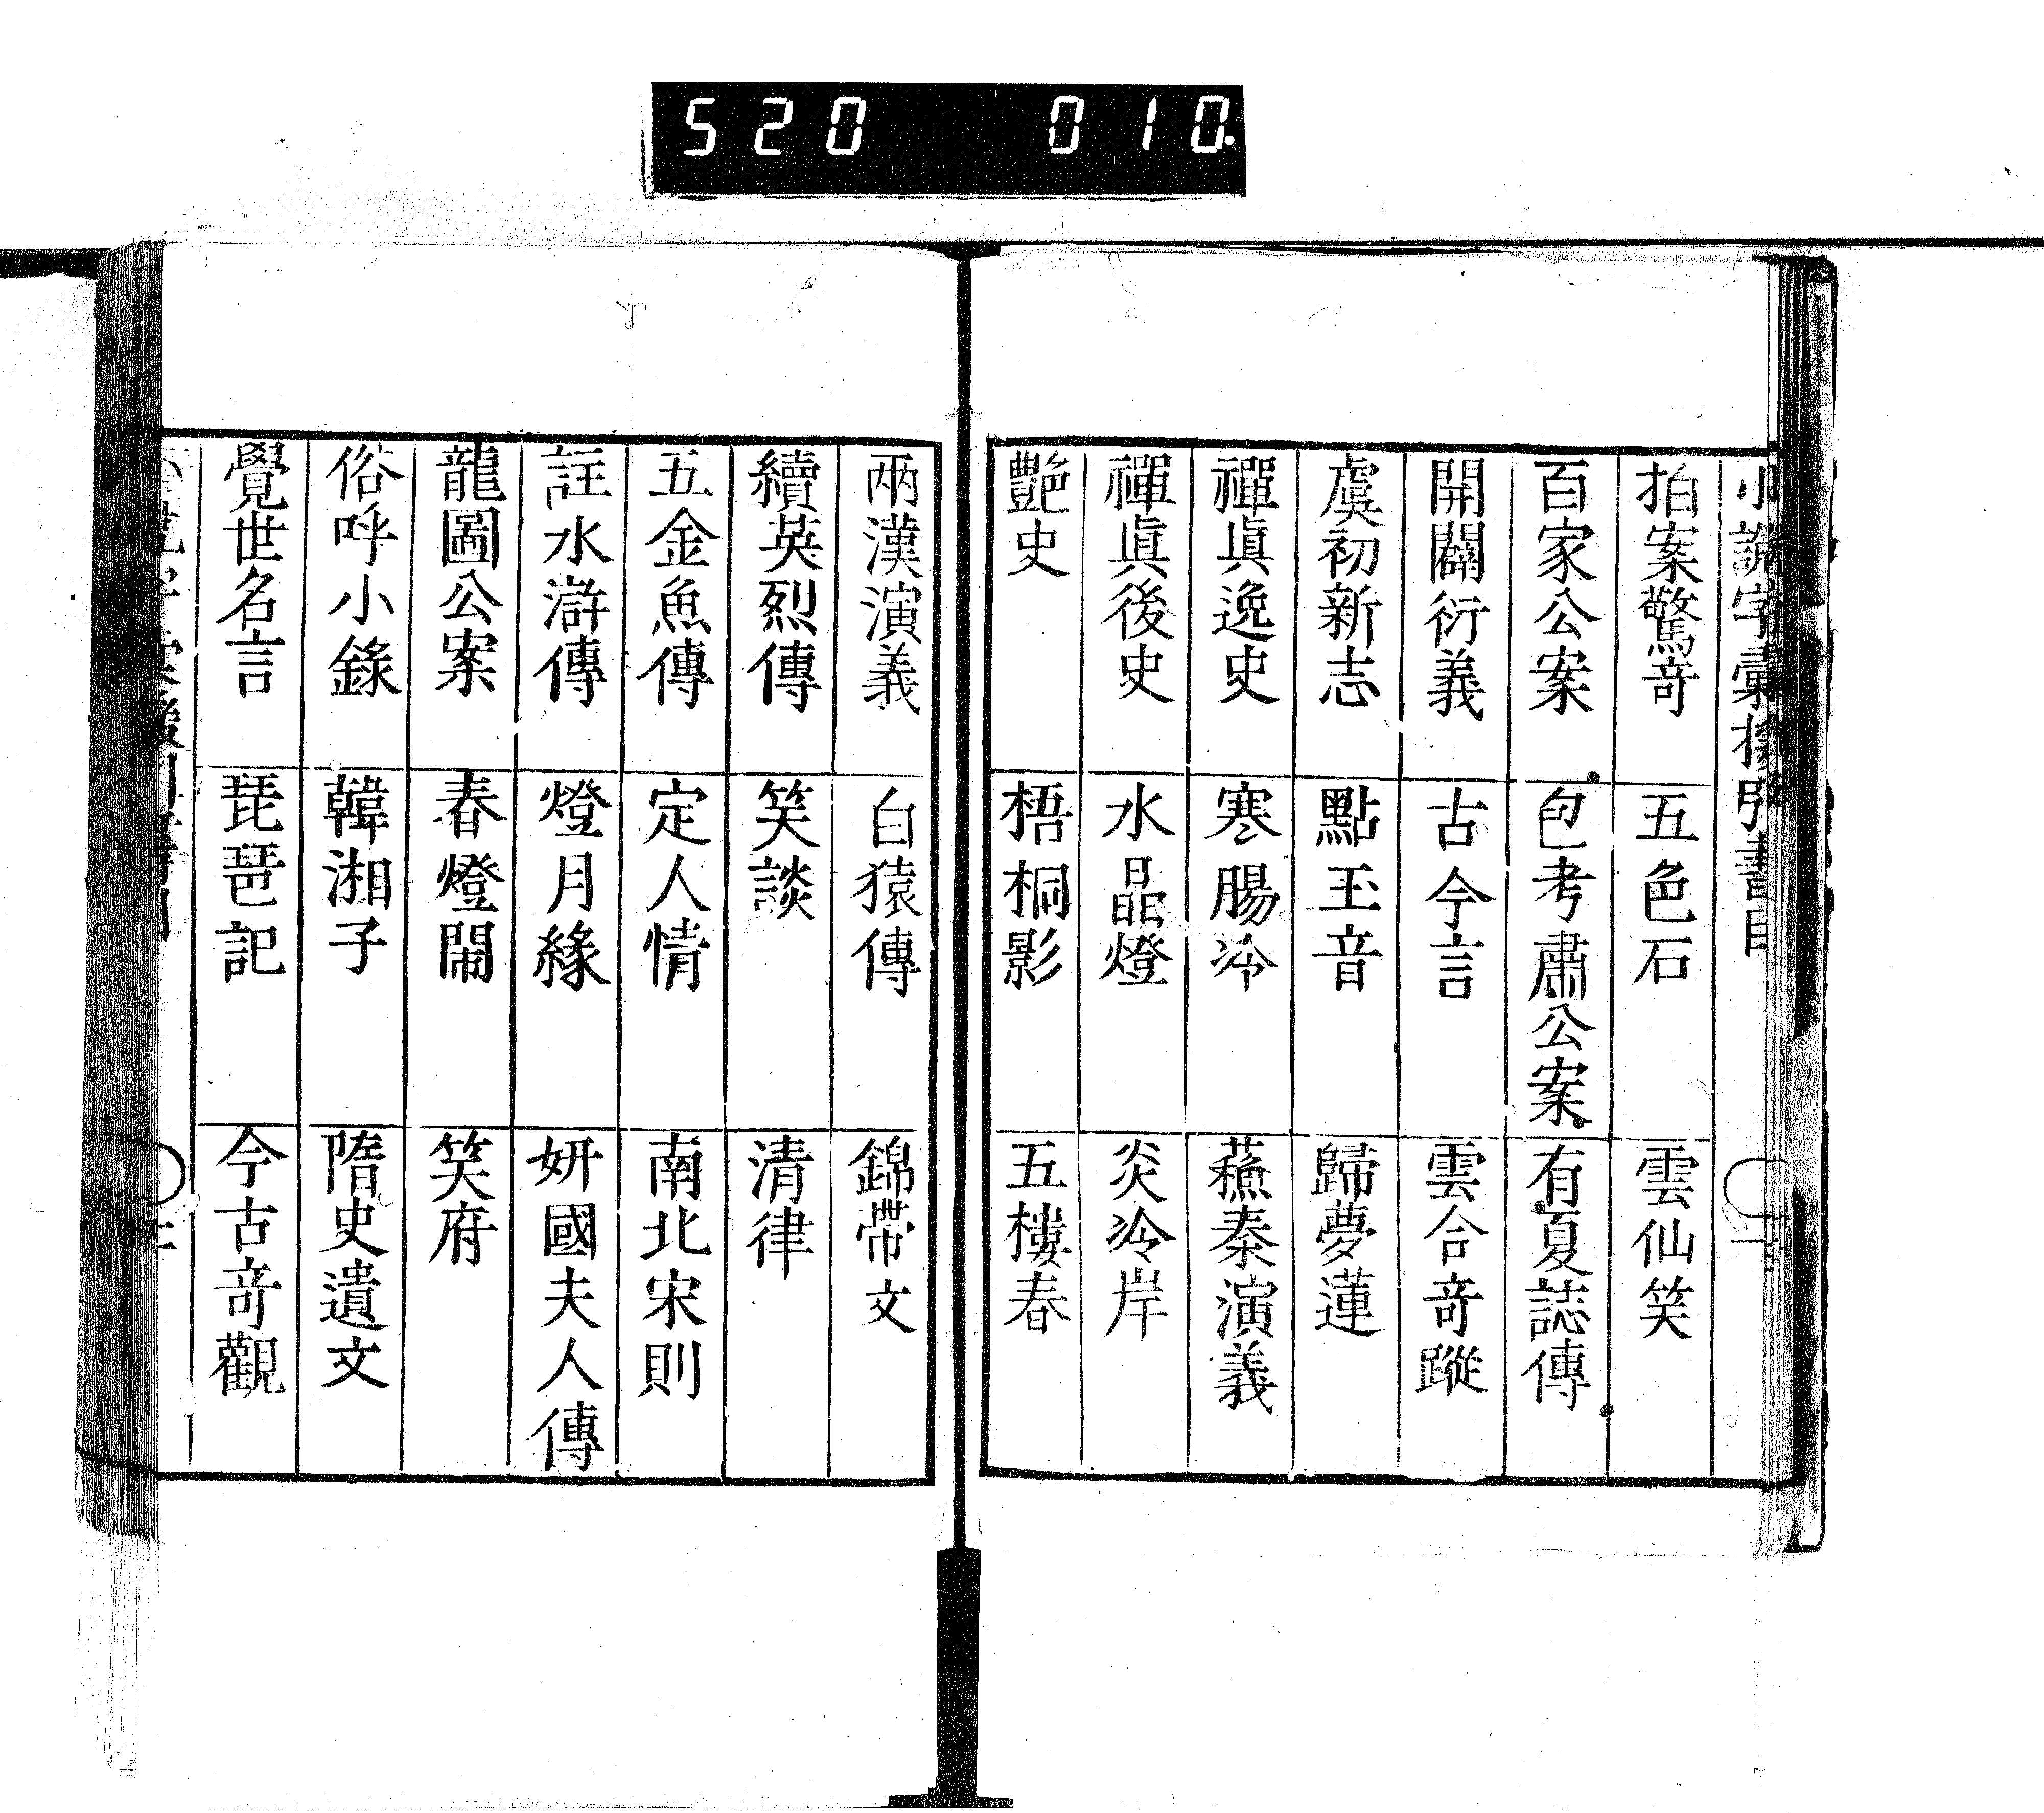 520 010
小說字彙援引書目
拍案驚奇 五色石 雲仙笑
百家公案 包孝肅公案 有夏誌傳
開闢衍義 古今言 雲合奇蹤
虞初新志 點玉音 歸夢蓮
禪眞逸史 寒腸冷 蘓秦演義
禪眞後史 水晶燈 炎冷岸
艷史 梧桐影 五樓春
兩漢演義 白猿傳 錦帶文
續英烈傳 笑談 清律
五金魚傳 定人情 南北宋則
註水滸傳 燈月緣 姸國夫人傳
龍圖公案 春燈鬧 笑府
俗呼小錄 韓湘子 隋史遺文
覺世名言 琵琶記 今古奇觀